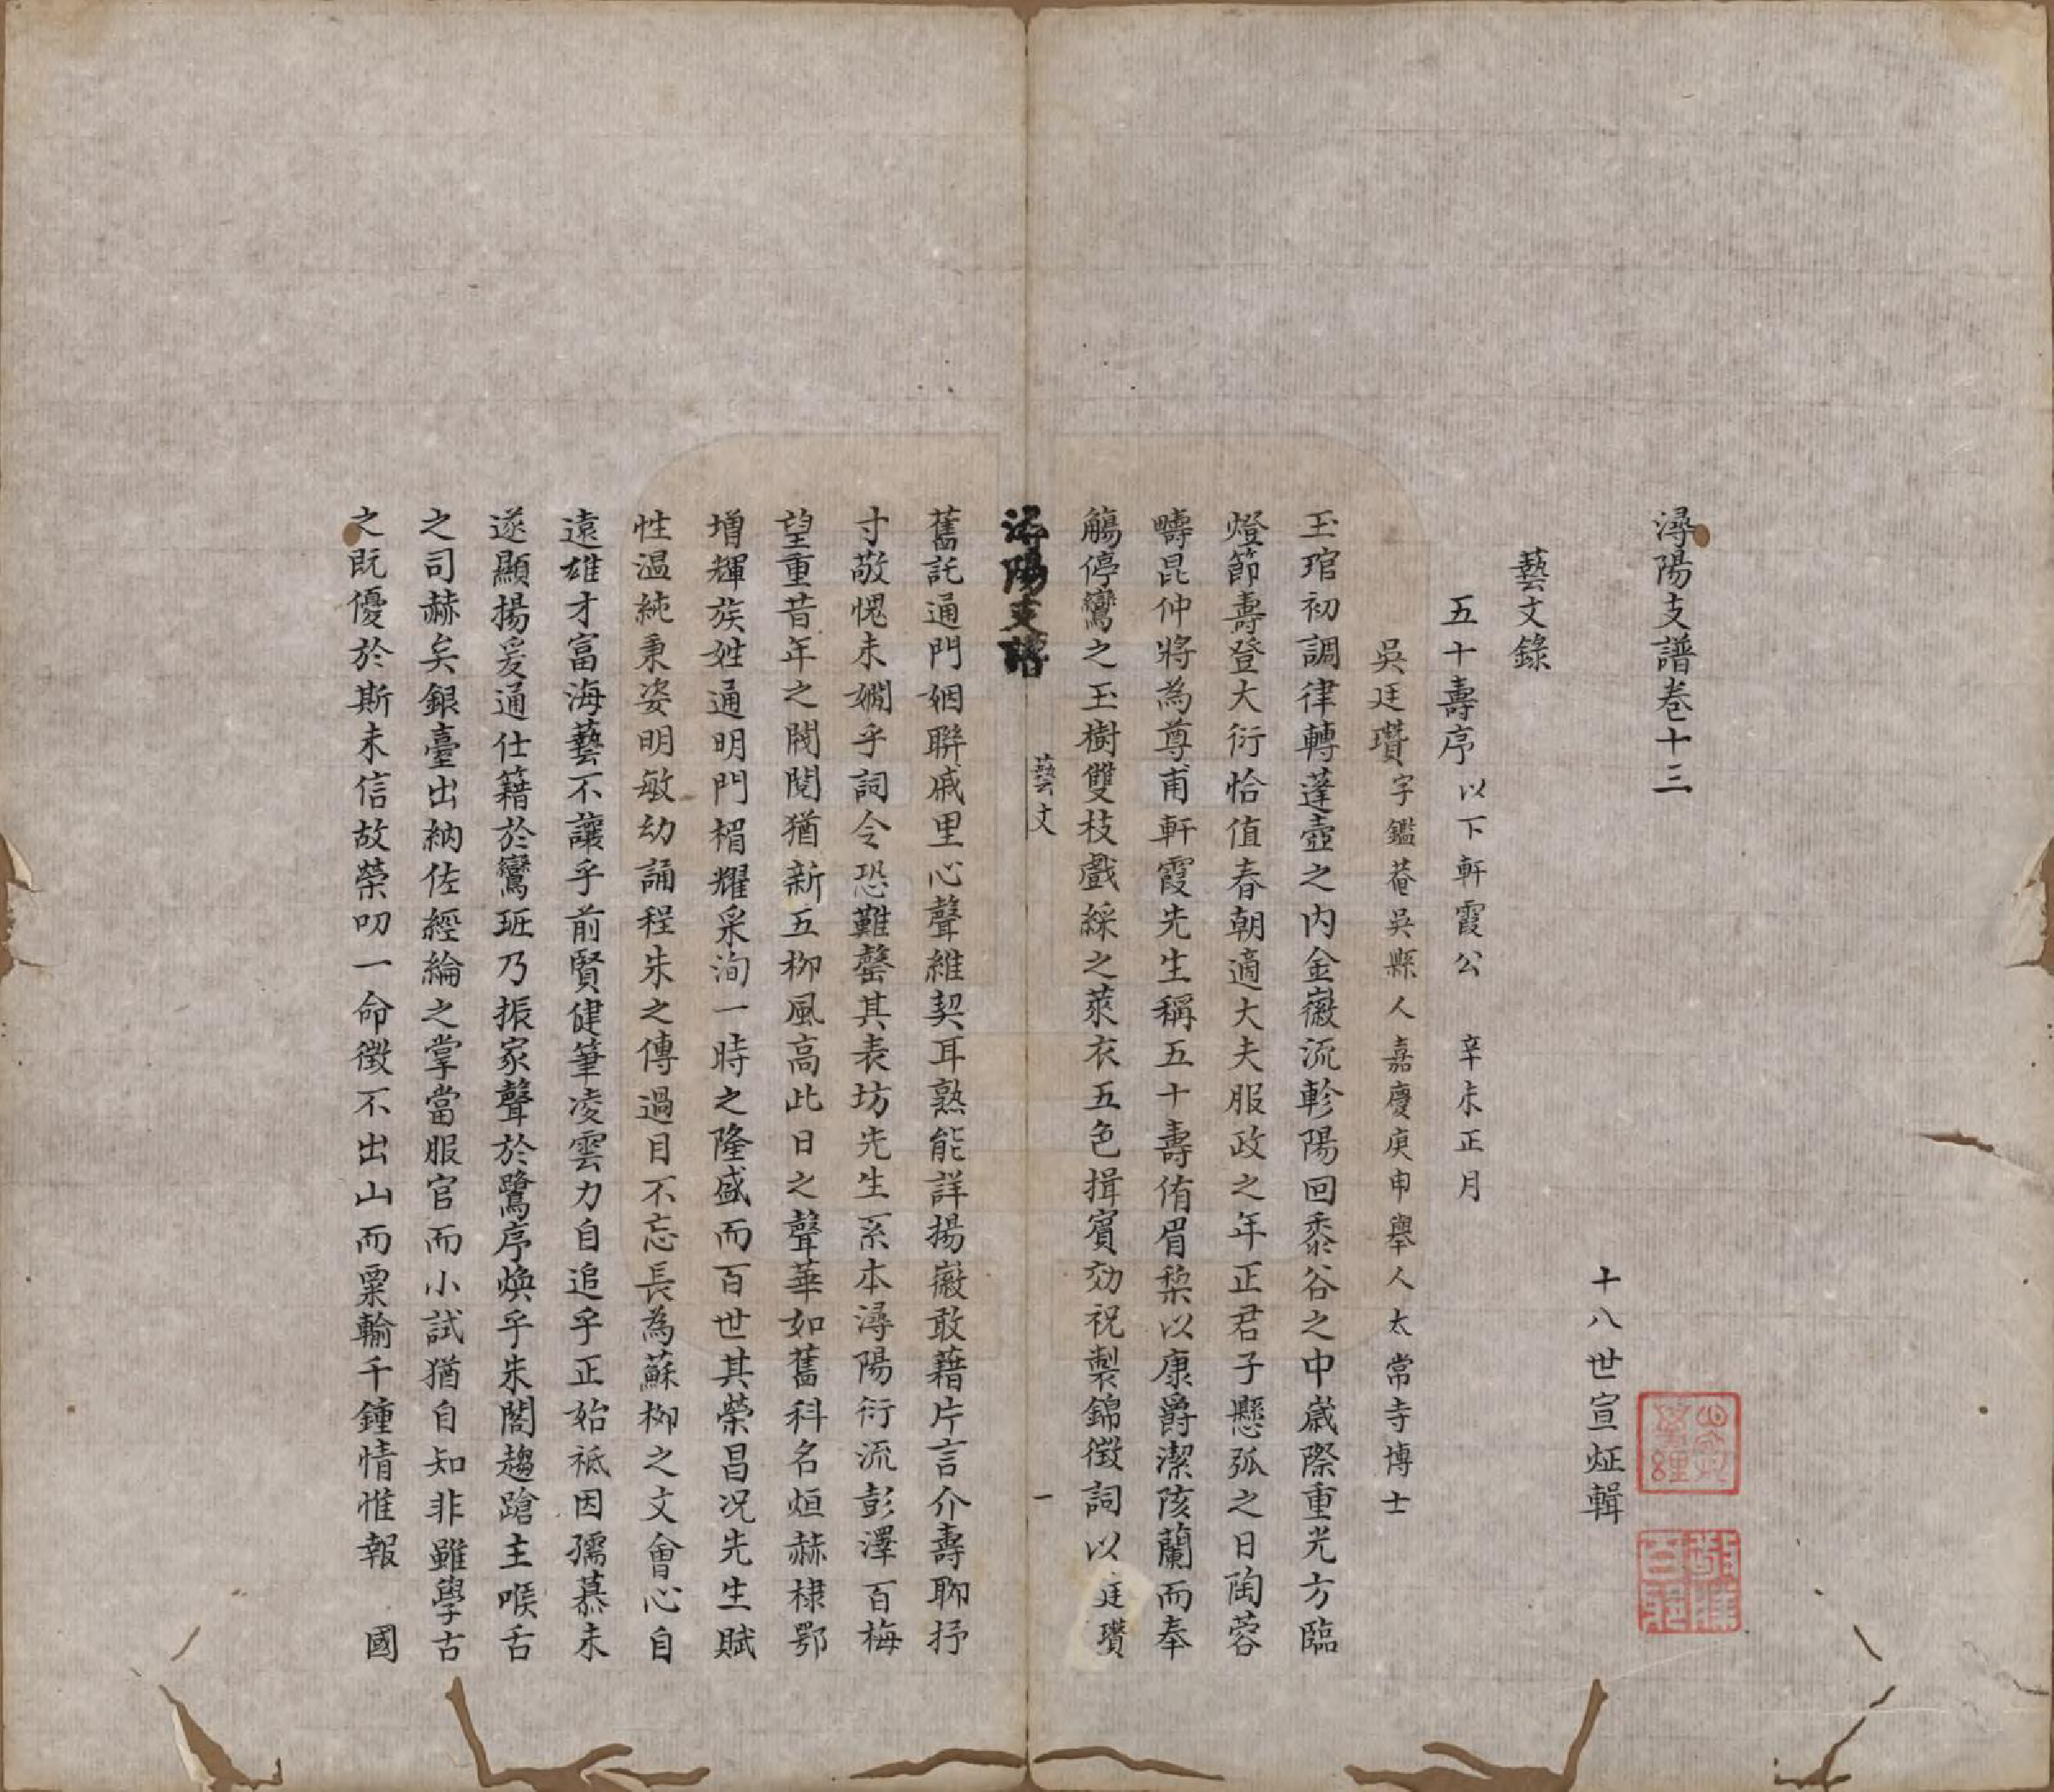 潯陽支譜卷十三
十八世宣炡輯
藝文錄
五十壽序 以下軒霞公 辛未正月
吳廷瓚 字鑑菴吳縣人嘉慶庚申舉人太常寺博士
玉琯初調律轉蓬壺之內金徽流軫陽回黍谷之中歲際重光方臨
燈節壽登大衍恰值春朝適大夫服政之年正君子懸弧之日陶蓉
疇昆仲將為尊甫軒霞先生稱五十壽侑眉棃以康爵潔陔蘭而奉
觴停鸞之玉樹雙枝戲綵之萊衣五色揖賓効祝製錦徵詞以廷瓚
潯陽支譜
藝文
一
舊託通門姻聯戚里心聲維契耳熟能詳揚徽敢藉片言介壽聊抒
寸敬愧未嫺乎詞令恐難罄其表坊先生系本潯陽衍流彭澤百梅
望重昔年之閥閱猶新五柳風高此日之聲華如舊科名烜赫棣鄂
增輝族姓通明門楣耀采洵一時之隆盛而百世其榮昌況先生賦
性温純秉姿明敏幼誦程朱之傳過目不忘長為蘇柳之文會心自
遠雄才富海藝不讓乎前賢健筆凌雲力自追乎正始祗因孺慕未
遂顯揚爰通仕籍於鸞班乃振家聲於鷺序煥乎朱閣趨蹌主喉舌
之司赫矣銀臺出納佐經綸之掌當服官而小試猶自知非雖學古
之既優於斯未信故榮叨一命徵不出山而粟輸千鍾情惟報 國